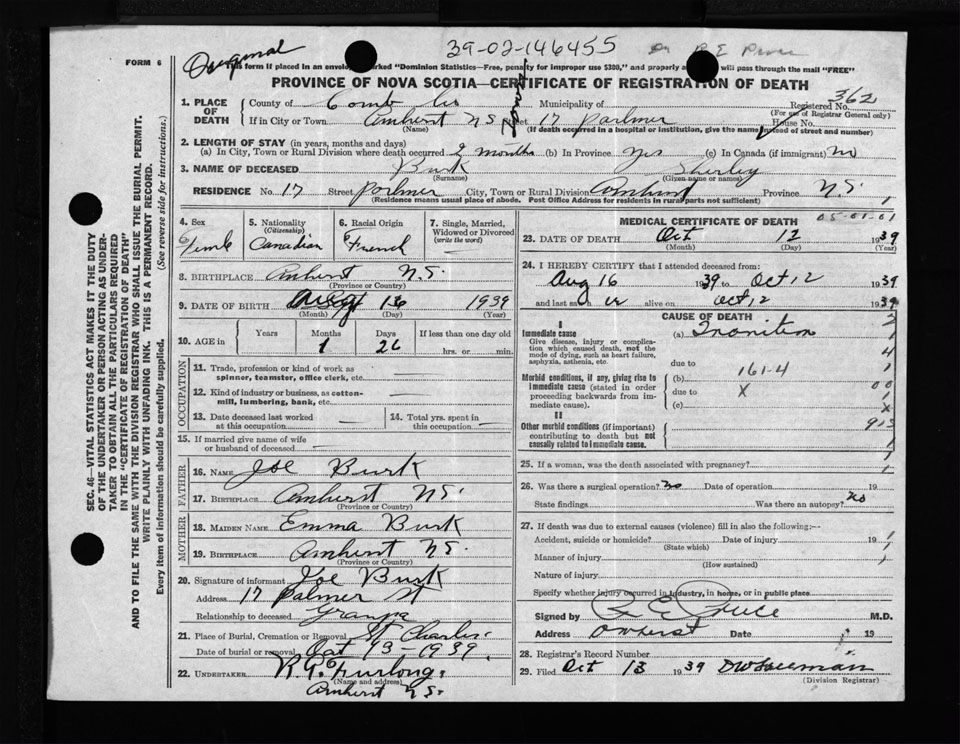 Original
39-02-146455
FORM 6
This form if placed in an envelope marked "Dominion Statistics—Free, penalty for improper use $300," and properly addressed will pass through the mail "FREE"
PROVINCE OF NOVA SCOTIA—CERTIFICATE OF REGISTRATION OF DEATH
SEC. 46—VITAL STATISTICS ACT MAKES IT THE DUTY
OF THE UNDERTAKER OR PERSON ACTING AS UNDER-
TAKER TO OBTAIN ALL THE PARTICULARS REQUIRED
IN THE "CERTIFICATE OF REGISTRATION OF DEATH"
AND TO FILE THE SAME WITH THE DIVISION REGISTRAR WHO SHALL ISSUE THE BURIAL PERMIT.
WRITE PLAINLY WITH UNFADING INK. THIS IS A PERMANENT RECORD.
Every item of information should be carefully supplied. (See reverse side for instructions.)
1. PLACE OF DEATH County of Municipality of Registered No. 362
(For use of Registrar General only)
If in City or Town Amherst N S Street 17 House No.
(Name) (If death occurred in a hospital or institution, give the name instead of street and number)
2. LENGTH OF STAY (in years, months and days)
(a) In City, Town or Rural Division where death occurred 2 months (b) In Province Yes (c) In Canada (if immigrant) no
3. NAME OF DECEASED Burk Sherley
(Surname) (Given name or names)
RESIDENCE No. 17 Street City, Town or Rural Division Amherst Province N.S.
(Residence means usual place of abode. Post Office Address for residents in rural parts not sufficient)
4. Sex 5. Nationality (Citizenship) 6. Racial Origin 7. Single, Married, Widowed or Divorced (write the word)
Canadian French
8. BIRTHPLACE Amherst N.S.
(Province or Country)
9. DATE OF BIRTH 16 1939
(Month) (Day) (Year)
10. AGE in Years Months Days If less than one day old
1 26 hrs. or min.
OCCUPATION
11. Trade, profession or kind of work as
spinner, teamster, office clerk, etc.
12. Kind of industry or business, as cotton-
mill, lumbering, bank, etc.
13. Date deceased last worked
at this occupation
14. Total yrs. spent in
this occupation
15. If married give name of wife
or husband of deceased
FATHER
16. NAME Joe Burk
17. BIRTHPLACE Amherst N.S.
(Province or Country)
MOTHER
18. MAIDEN NAME Emma Burk
19. BIRTHPLACE Amherst N.S.
(Province or Country)
20. Signature of informant Joe Burk
Address 17 Palmer St
Relationship to deceased Granpa
21. Place of Burial, Cremation or Removal St Charles
Date of burial or removal Oct 13-1939.
22. UNDERTAKER Furlong.
(Name and address)
Amherst N.S.
05-01-01
MEDICAL CERTIFICATE OF DEATH
23. DATE OF DEATH Oct 12 1939
(Month) (Day) (Year)
24. I HEREBY CERTIFY that I attended deceased from:
Aug 16 1939 to Oct 12 1939
and last saw alive on Oct 12 1939
CAUSE OF DEATH
I
Immediate cause (a)
Give disease, injury or complica-
tion which caused death, not the
mode of dying, such as heart failure,
asphyxia, asthenia, etc.
due to
161-4
Morbid conditions, if any, giving rise to
immediate cause (stated in order
proceeding backwards from im-
mediate cause).
(b)
due to X
(c)
II
Other morbid conditions (important)
contributing to death but not
causally related to immediate cause.
25. If a woman, was the death associated with pregnancy?
26. Was there a surgical operation? no Date of operation 19
State findings Was there an autopsy? no
27. If death was due to external causes (violence) fill in also the following:—
Accident, suicide or homicide? Date of injury 19
(State which)
Manner of injury
(How sustained)
Nature of injury
Specify whether injury occurred in industry, in home, or in public place
Signed by M.D.
Address Amherst Date 19
28. Registrar's Record Number
29. Filed Oct 13 1939
(Division Registrar)